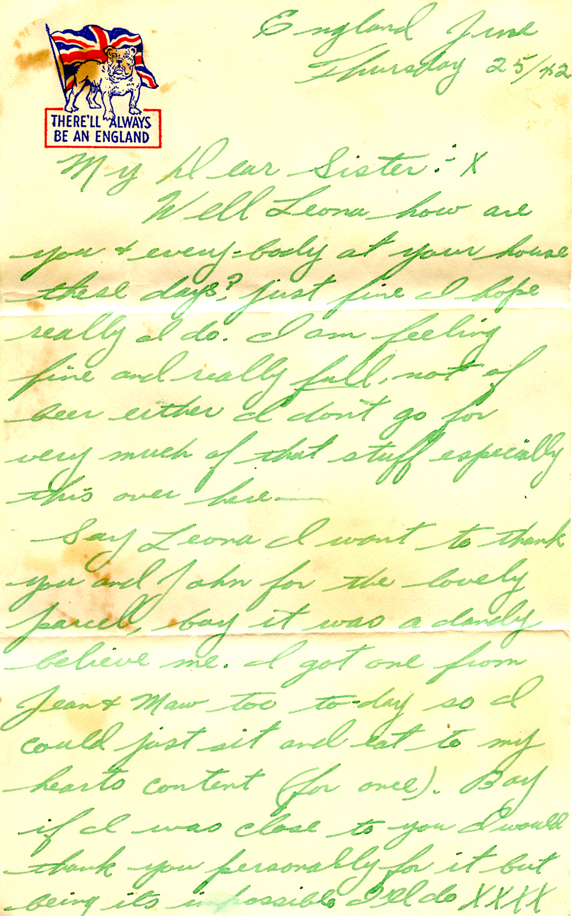 England June
Thursday 25/42
THERE'LL ALWAYS
BE AN ENGLAND
My Dear Sister:- X
Well Leona how are
you & every-body at your house
these days? just fine I hope
really I do. I am feeling
fine and really full, not of
beer either I don't go for
very much of that stuff especially
this over here —
Say Leona I want to thank
you and John for the lovely
parcell, boy it was a dandy
believe me. I got one from
Jean & Maw too to-day so I
could just sit and eat to my
hearts content (for once). Boy
if I was close to you I would
thank you personally for it but
being its impossible I'll do XXXX